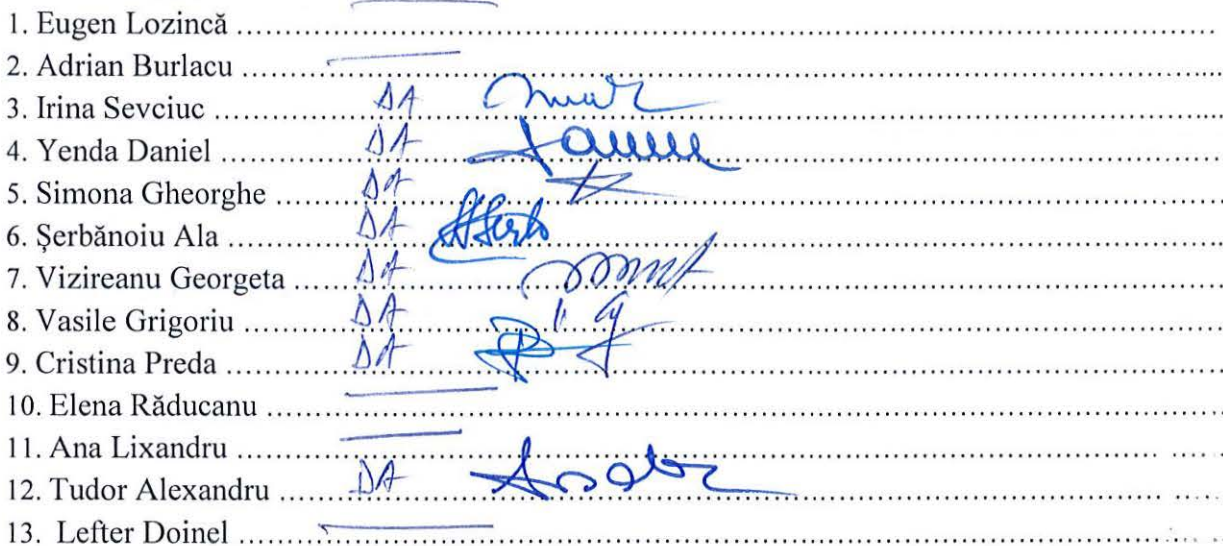 1. Eugen Lozincă ........................
2. Adrian Burlacu ........................
3. Irina Sevciuc ............ DA ............
4. Yenda Daniel ............ DA ............
5. Simona Gheorghe ............ DA ............
6. Șerbănoiu Ala ............ DA ............
7. Vizireanu Georgeta ............ DA ............
8. Vasile Grigoriu ............ DA ............
9. Cristina Preda ............ DA ............
10. Elena Răducanu ........................
11. Ana Lixandru ........................
12. Tudor Alexandru ............ DA ............
13. Lefter Doinel ........................